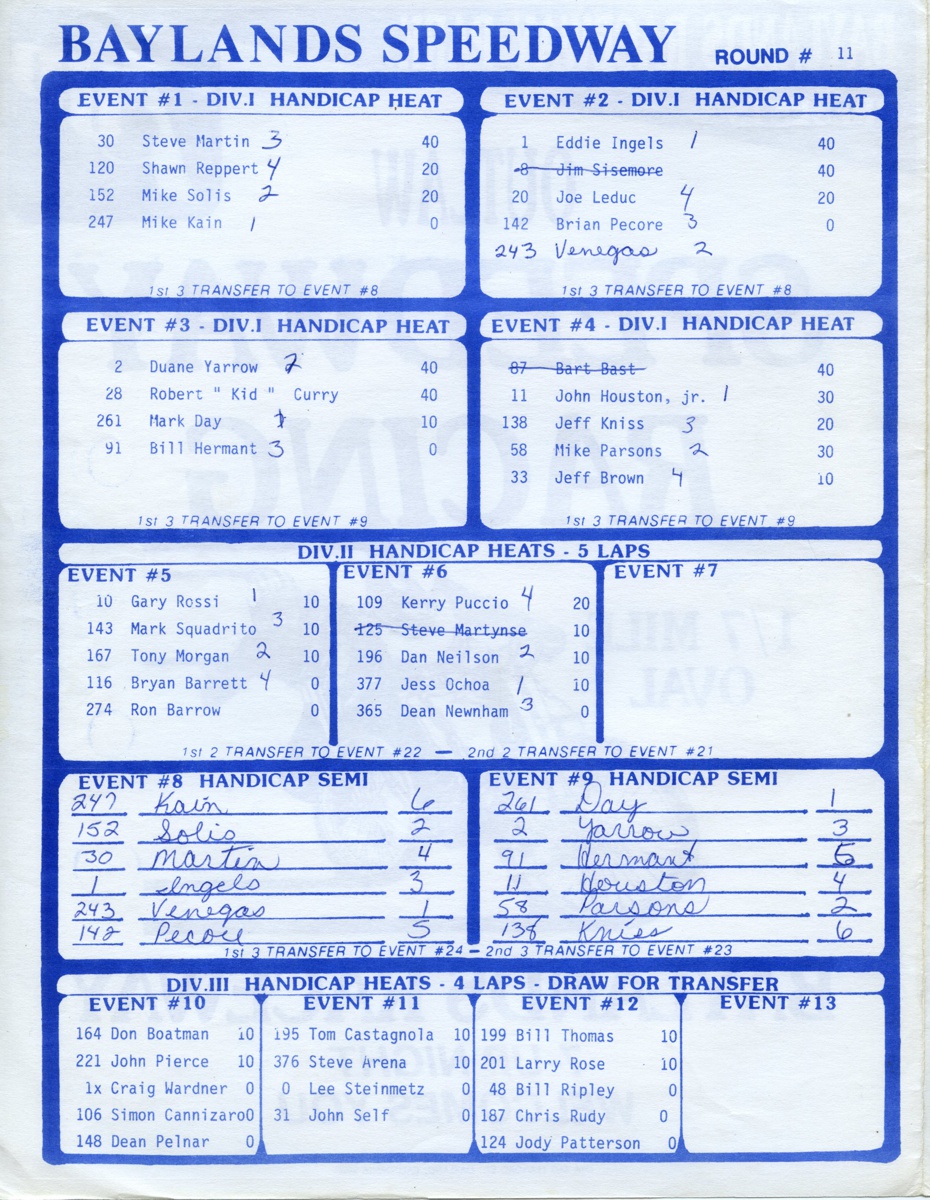 BAYLANDS SPEEDWAY ROUND # 11
EVENT #1 - DIV.I HANDICAP HEAT
30 Steve Martin 3 40
120 Shawn Reppert 4 20
152 Mike Solis 2 20
247 Mike Kain 1 0
1st 3 TRANSFER TO EVENT #8
EVENT #2 - DIV.I HANDICAP HEAT
1 Eddie Ingels 1 40
8 Jim Sisemore 40
20 Joe Leduc 4 20
142 Brian Pecore 3 0
243 Venegas 2
1st 3 TRANSFER TO EVENT #8
EVENT #3 - DIV.I HANDICAP HEAT
2 Duane Yarrow 2 40
28 Robert " Kid " Curry 40
261 Mark Day 1 10
91 Bill Hermant 3 0
1st 3 TRANSFER TO EVENT #9
EVENT #4 - DIV.I HANDICAP HEAT
87 Bart Bast 40
11 John Houston, jr. 1 30
138 Jeff Kniss 3 20
58 Mike Parsons 2 30
33 Jeff Brown 4 10
1st 3 TRANSFER TO EVENT #9
DIV.II HANDICAP HEATS - 5 LAPS
EVENT #5
10 Gary Rossi 1 10
143 Mark Squadrito 3 10
167 Tony Morgan 2 10
116 Bryan Barrett 4 0
274 Ron Barrow 0
EVENT #6
109 Kerry Puccio 4 20
125 Steve Martynse 10
196 Dan Neilson 2 10
377 Jess Ochoa 1 10
365 Dean Newnham 3 0
EVENT #7
1st 2 TRANSFER TO EVENT #22 — 2nd 2 TRANSFER TO EVENT #21
EVENT #8 HANDICAP SEMI
247 Kain 6
152 Solis 2
30 Martin 4
1 Ingels 3
243 Venegas 1
142 Pecore 5
EVENT #9 HANDICAP SEMI
261 Day 1
2 Yarrow 3
91 Hermant 5
11 Houston 4
58 Parsons 2
138 Kniss 6
1st 3 TRANSFER TO EVENT #24 — 2nd 3 TRANSFER TO EVENT #23
DIV.III HANDICAP HEATS - 4 LAPS - DRAW FOR TRANSFER
EVENT #10
164 Don Boatman 10
221 John Pierce 10
1x Craig Wardner 0
106 Simon Cannizaro 0
148 Dean Pelnar 0
EVENT #11
195 Tom Castagnola 10
376 Steve Arena 10
0 Lee Steinmetz 0
31 John Self 0
EVENT #12
199 Bill Thomas 10
201 Larry Rose 10
48 Bill Ripley 0
187 Chris Rudy 0
124 Jody Patterson 0
EVENT #13